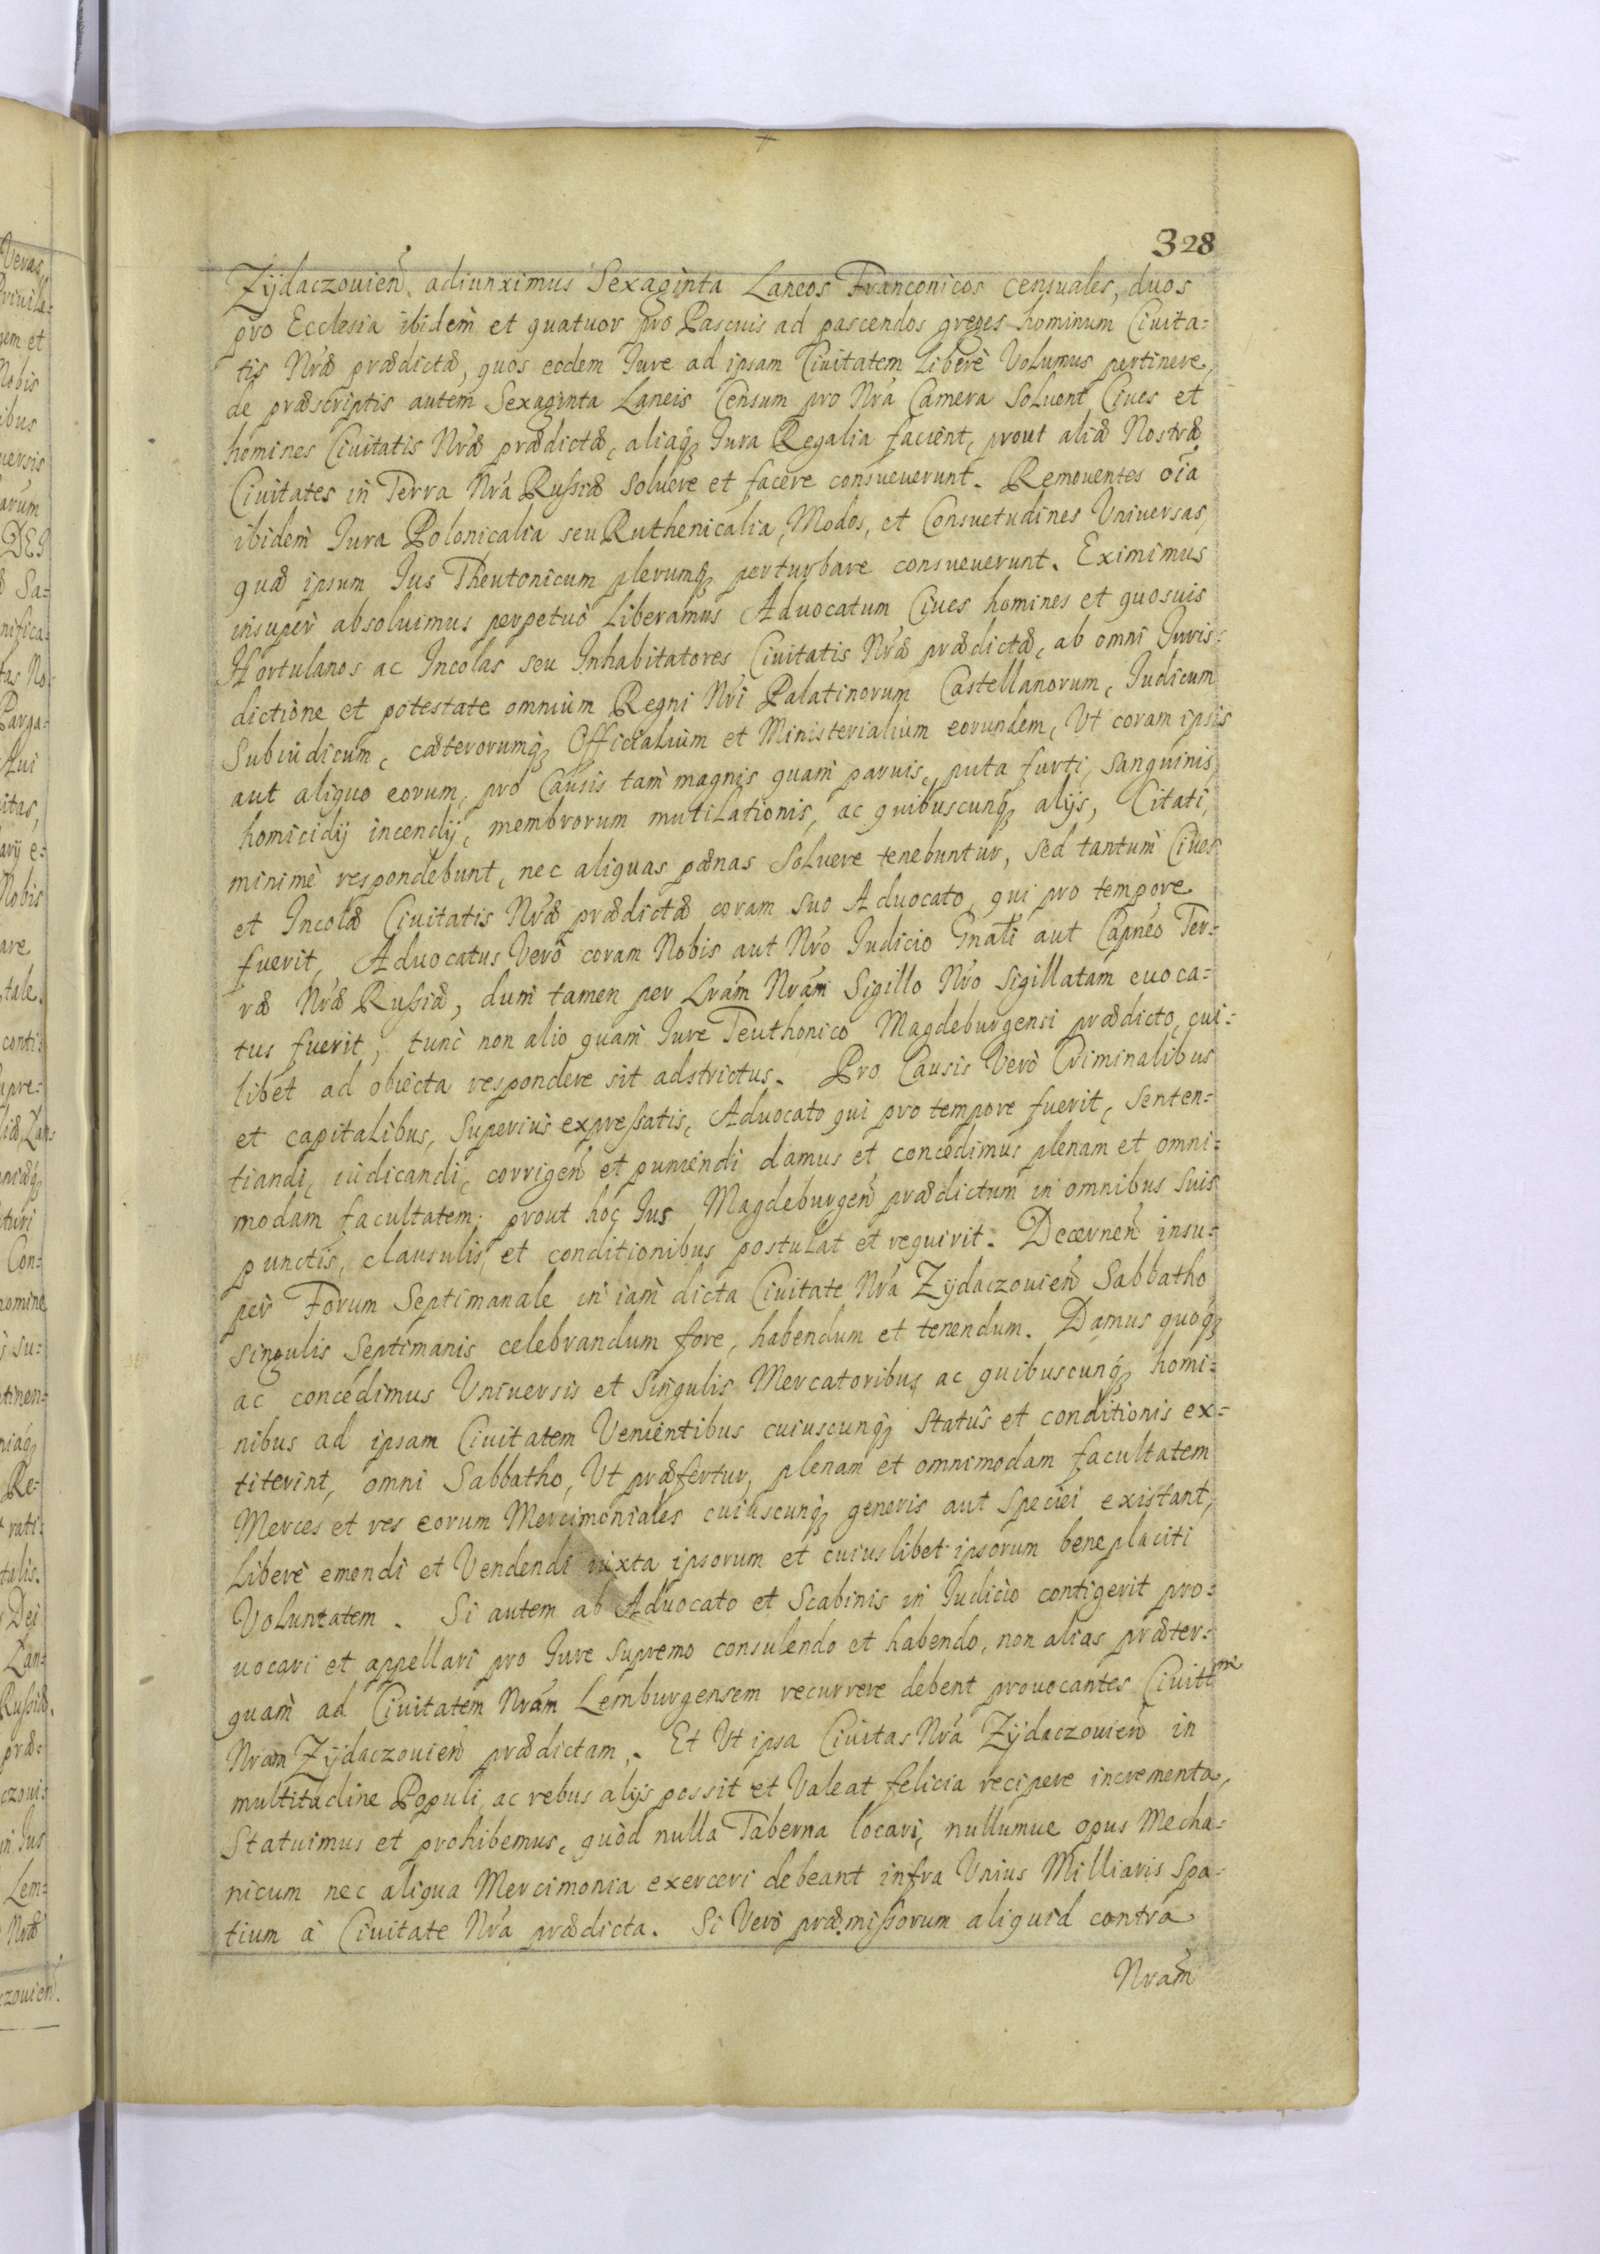 328
Zÿdaczouien̄. adiunximus Sexaginta Laneos Franconicos censuales, duos
pro Ecclesia ibidem et quatuor pro Pascuis ad pascendos greges hominum Ciuita-
tis Nr̄æ prædictæ, quos eodem Iure ad ipsam Ciuitatem liberè Volumus pertinere,
de præscriptis autem Sexaginta Laneis Censum pro Nr̄a Camera Soluent Ciues et
homines Ciuitatis Nr̄æ prædictæ, aliaq́ꝫ Iura Regalia facient, prout aliæ Nostræ
Ciuitates in Terra Nr̄a Russiæ soluere et facere consueuerunt. Remouentes oīa
ibidem Iura Polonicalia seu Ruthenicalia, Modos, et Consuetudines Vniuersas,
quæ ipsum Ius Theutonicum plerumq́ꝫ perturbare consueuerunt. Eximimus
insuper absoluimus perpetuò Liberamus Aduocatum, Ciues homines et quosuis
Hortulanos ac Incolas seu Inhabitatores Ciuitatis Nr̄æ prædictæ, ab omni Iuris-
dictione et potestate omnium Regni Nr̄i Palatinorum Castellanorum, Iudicum
Subiudicum, cæterorumq́ꝫ Officialium et Ministerialium eorundem, Vt coram ipsis
aut aliquo eorum, pro Causis tam magnis quam paruis, puta furti, sanguinis,
homicidij incendij, membrorum mutilationis, ac quibuscunq́ꝫ alijs, Citati,
minimè respondebunt, nec aliquas pœnas Soluere tenebuntur, sed tantum Ciues
et Incolæ Ciuitatis Nr̄æ prædictæ coram suo Aduocato, qui pro tempore
fuerit, Aduocatus Verò coram Nobis aut Nr̄o Iudicio Gnāli aut Capnēo Ter-
ræ Nr̄æ Russiæ, dum tamen per Lrām Nrām Sigillo Nr̄o sigillatam euoca-
tus fuerit, tunc non alio quam Iure Teuthonico Magdeburgensi prædicto, cui-
libet ad obiecta respondere sit adstrictus. Pro Causis Verò Criminalibus
et capitalibus, Superius expressatis, Aduocato qui pro tempore fuerit, senten-
tiandi, iudicandi, corrigen̄ et puniendi damus et concedimus plenam et omni-
modam facultatem; prout hoc Ius Magdeburgen̄ prædictum in omnibus suis
punctis, clausulis, et conditionibus postulat et requirit. Decernen̄ insu-
per Forum Septimanale in iam dicta Ciuitate Nr̄a Zÿdaczouien̄ Sabbatho
singulis Septimanis celebrandum fore, habendum et tenendum. Damus quoq́ꝫ
ac concedimus Vniuersis et Singulis Mercatoribus ac quibuscunq́ꝫ homi-
nibus ad ipsam Ciuitatem Venientibus cuiuscunq́ꝫ status et conditionis ex-
titerint, omni Sabbatho, Vt præfertur, plenam et omnimodam facultatem
Merces et res eorum Mercimoniales cuiuscunq́ꝫ generis aut speciei existant,
Liberè emendi et Vendendi iuxta ipsorum et cuiuslibet ipsorum beneplaciti
Voluntatem. Si autem ab Aduocato et Scabinis in Iudicio contigerit pro-
uocari et appellari pro Iure supremo consulendo et habendo, non alias præter-
quam ad Ciuitatem Nrām Lemburgensem recurrere debent prouocantes Ciuittm̄
Nram Zÿdaczouien̄ prædictam. Et Vt ipsa Ciuitas Nr̄a Zÿdaczouien̄ in
multitudine Populi ac rebus alijs possit et Valeat felicia recipere incrementa,
Statuimus et prohibemus, quòd nulla Taberna locari, nullumue opus Mecha-
nicum nec aliqua Mercimonia exerceri debeant infra Vnius Milliaris spa-
tium à Ciuitate Nr̄a prædicta. Si Verò præmissorum aliquid contra
Nrām